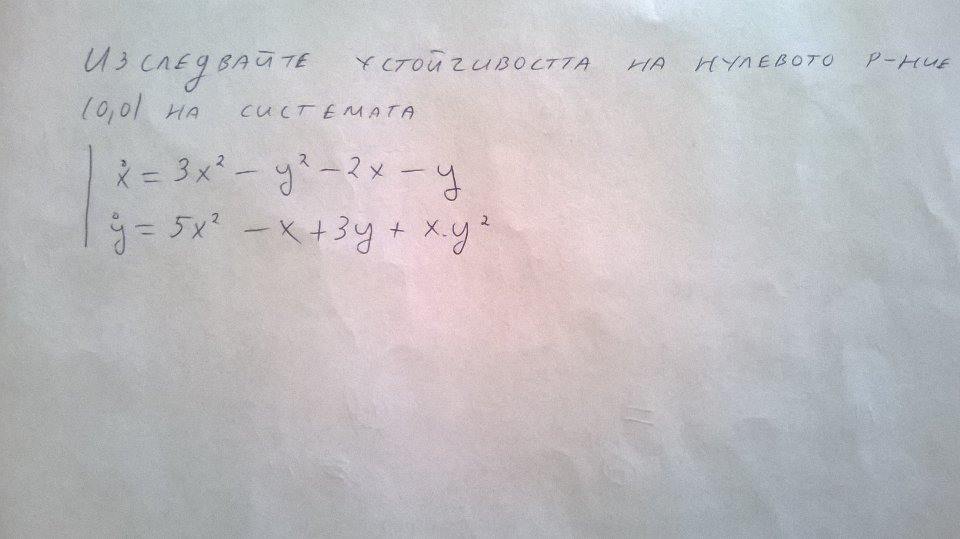 Изследвайте устойчивостта на нулевото р-ние
(0,0) на системата
ẋ = 3x² - y² - 2x - y
ẏ = 5x² - x + 3y + x.y²